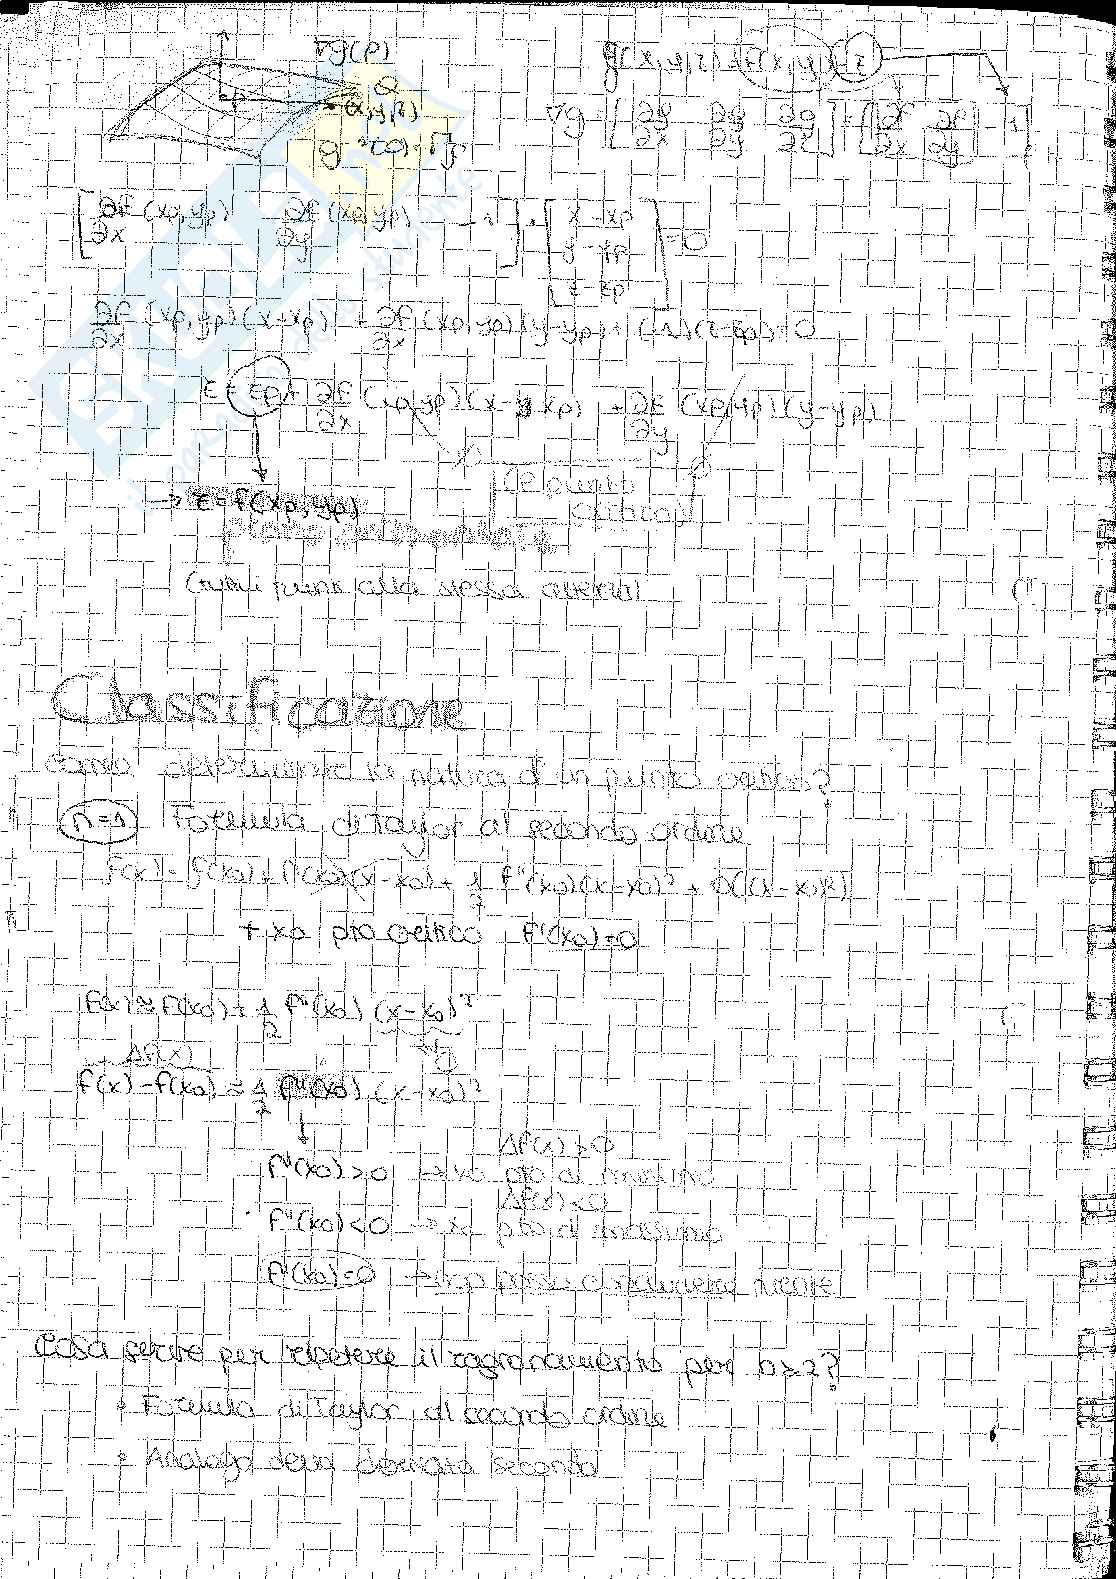 ∇g(P)
g(x,y,z) = f(x,y) - z
Q
P
(x,y,z)
g⁻¹(0) =
∇g = [∂g/∂x ∂g/∂y ∂g/∂z] = [∂f/∂x ∂f/∂y -1]
[∂f/∂x (xp,yp) ∂f/∂y (xp,yp) -1] · [x-xp y-yp z-zp] = 0
∂f/∂x (xp,yp)(x-xp) + ∂f/∂x (xp,yp)(y-yp) + (-1)(z-zp) = 0
z = zp + ∂f/∂x (xp,yp)(x-xp) + ∂f/∂y (xp,yp)(y-yp)
(P punto
critico)
→ z = f(xp,yp)
piano orizzontale
(tutti i punti alla stessa altezza)
Classificazione
come determinare la natura d'un punto critico?
n=1 Formula di Taylor al secondo ordine
f(x) = f(x₀) + f'(x₀)(x-x₀) + 1/2 f"(x₀)(x-x₀)² + o((x-x₀)²)
+ x₀ pto critico f'(x₀)=0
f(x) ≈ f(x₀) + 1/2 f"(x₀) (x-x₀)²
Δf(x)
f(x)-f(x₀) ≈ 1/2 f"(x₀) (x-x₀)²
Δf(x)>0
f"(x₀)>0 → x₀ pto di minimo
Δf(x)<0
f"(x₀)<0 → x₀ pto di massimo
f"(x₀)=0 → non posso concludere niente
Cosa serve per ripetere il ragionamento per n≥2?
• Formula di Taylor al secondo ordine
• Analogo della derivata seconda